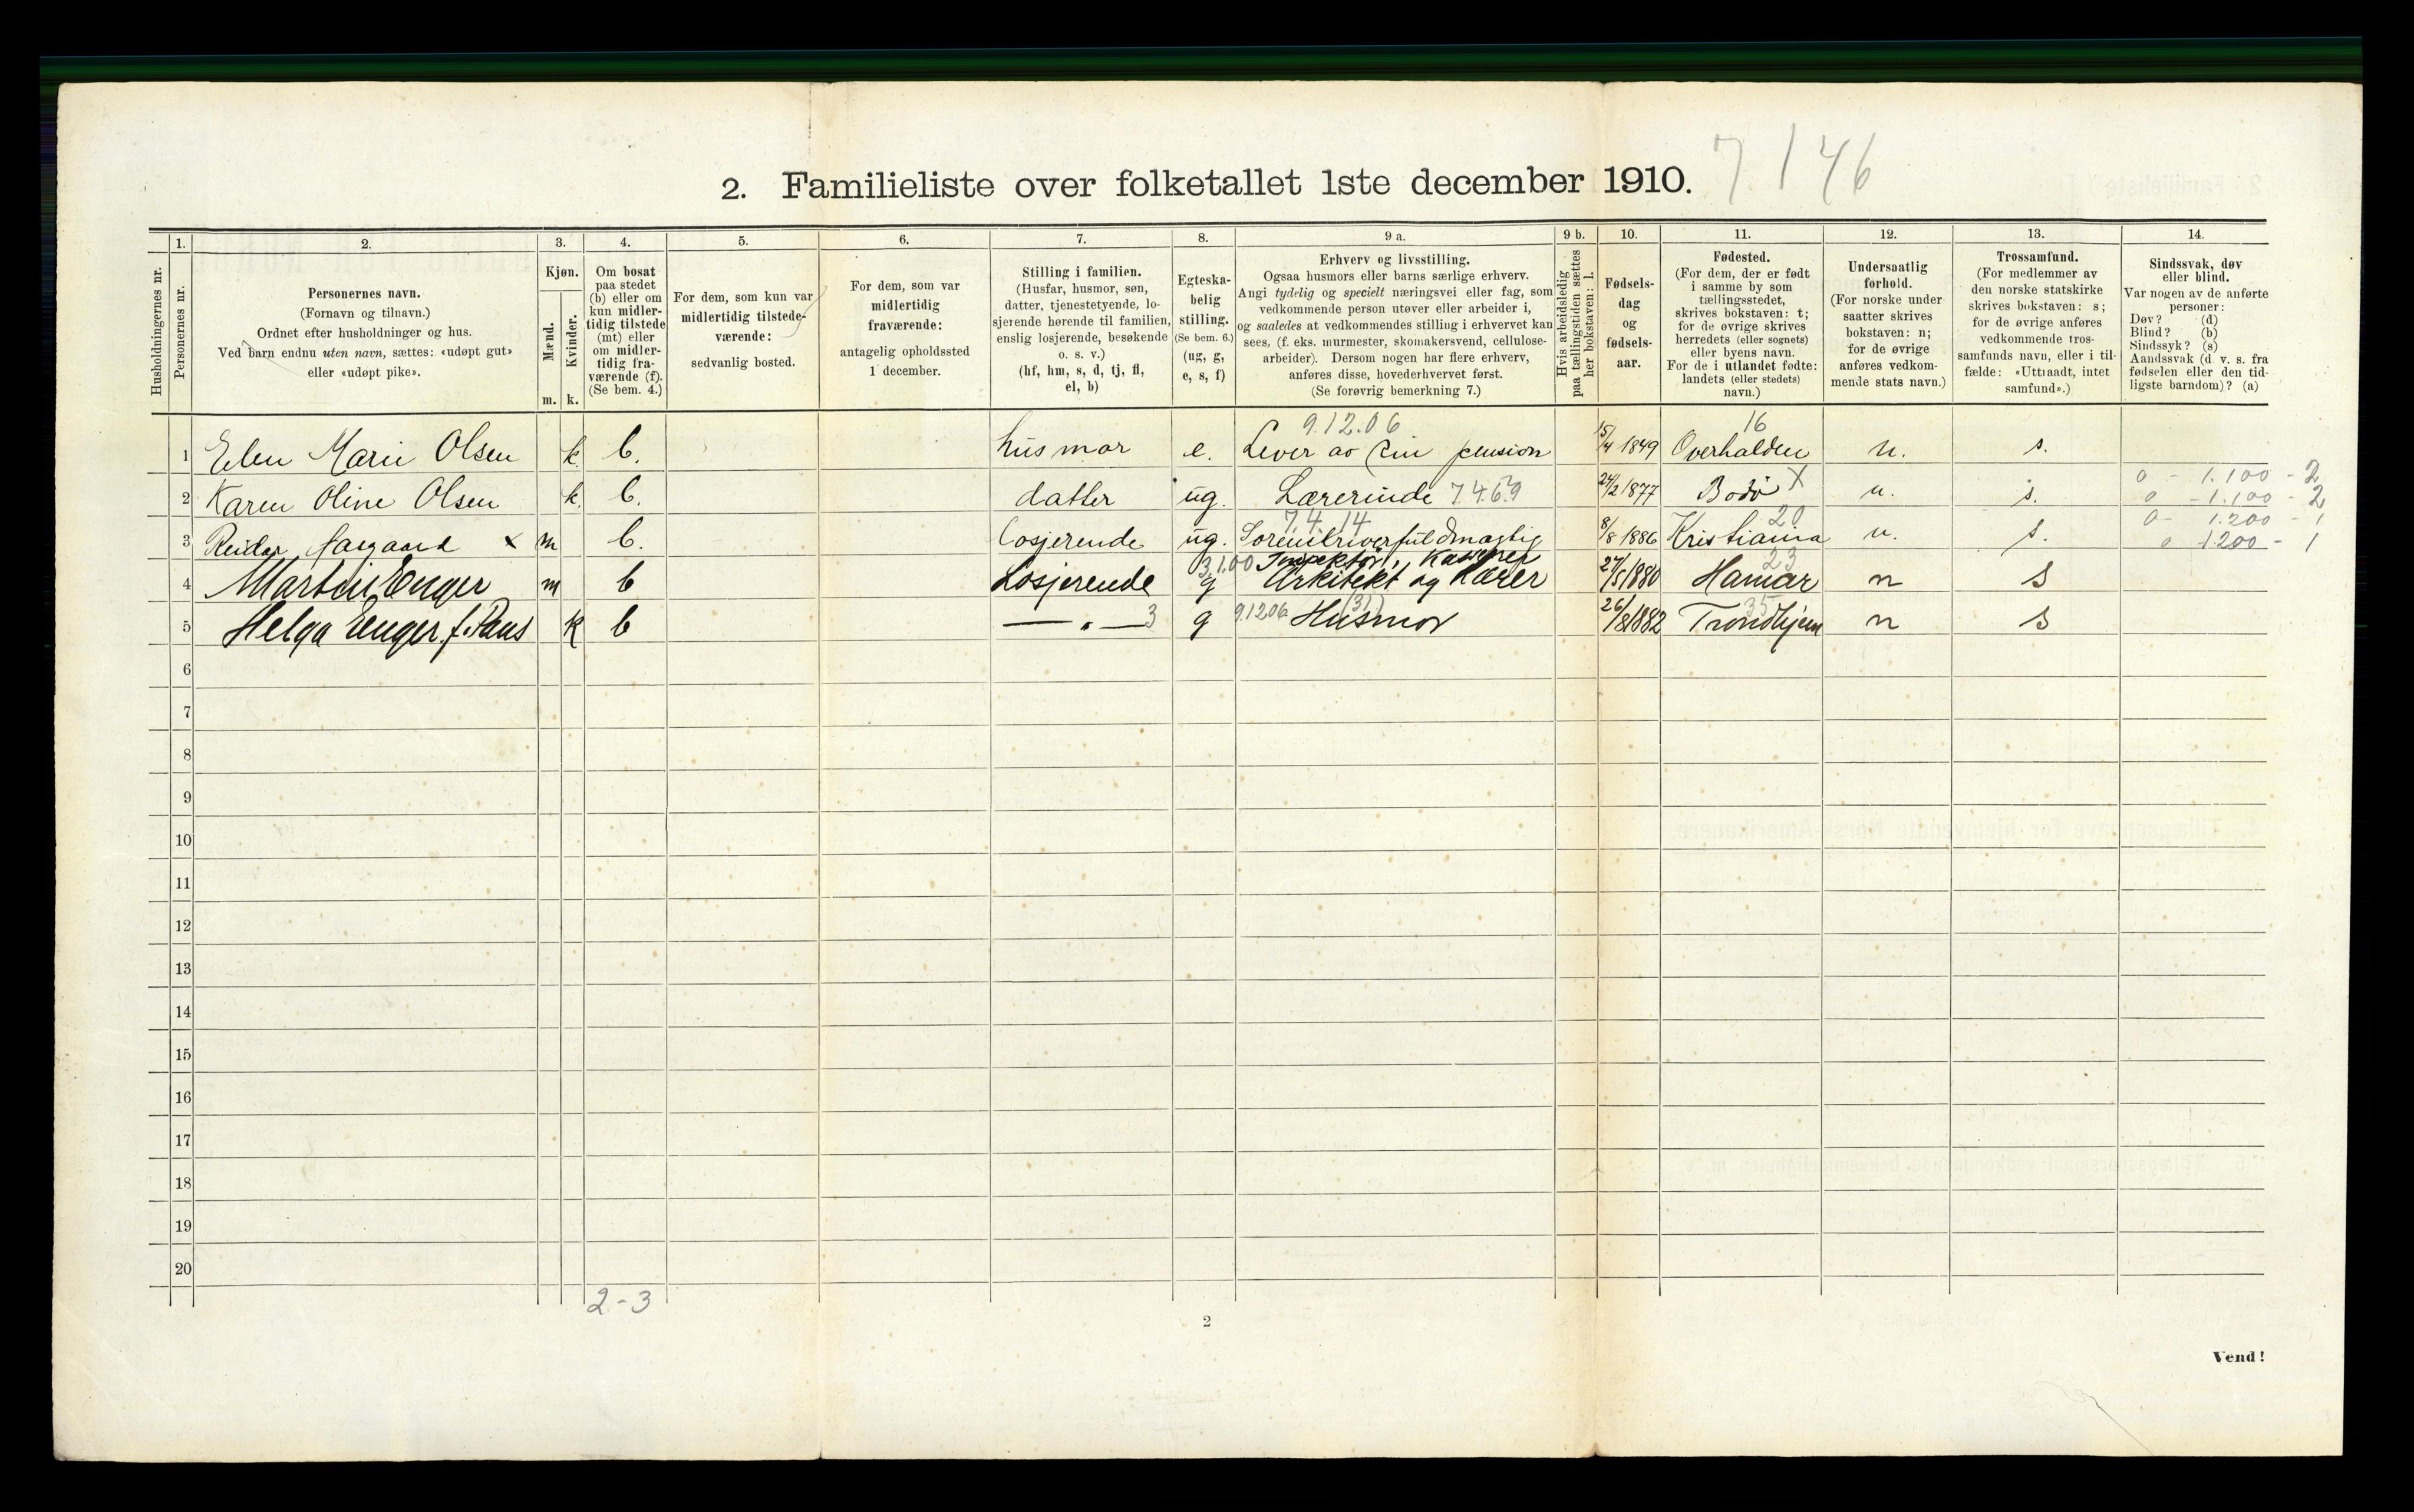 7.146
2. Familieliste over folketallet 1ste december 1910.
Husholdningernes nr.
1.
Personernes nr.
2.
Personernes navn.
(Fornavn og tilnavn.)
Ordnet efter husholdninger og hus.
Ved barn endnu uten navn, sættes: «udøpt gut»
eller «udøpt pike».
3.
Kjøn.
Mænd.
Kvinder.
m. k.
4.
Om bosat
paa stedet
(b) eller om
kun midler-
tidig tilstede
(mt) eller
om midler-
tidig fra-
værende (f).
(Se bem. 4.)
5.
For dem, som kun var
midlertidig tilstede-
værende:
sedvanlig bosted.
6.
For dem, som var
midlertidig
fraværende:
antagelig opholdssted
1 december.
7.
Stilling i familien.
(Husfar, husmor, søn,
datter, tjenestetyende, lo-
sjerende hørende til familien,
enslig losjerende, besøkende
o. s. v.)
(hf, hm, s, d, tj, fl,
el, b)
8.
Egteska-
belig
stilling.
(Se bem. 6.)
(ug, g,
e, s, f)
9 a.
Erhverv og livsstilling.
Ogsaa husmors eller barns særlige erhverv.
Angi tydelig og specielt næringsvei eller fag, som
vedkommende person utøver eller arbeider i,
og saaledes at vedkommendes stilling i erhvervet kan
sees, (f. eks. murmester, skomakersvend, cellulose-
arbeider). Dersom nogen har flere erhverv,
anføres disse, hovederhvervet først.
(Se forøvrig bemerkning 7.)
9 b.
Hvis arbeidsledig
paa tællingstiden sættes
her bokstaven: l.
10.
Fødsels-
dag
og
fødsels-
aar.
11.
Fødested.
(For dem, der er født
i samme by som
tællingsstedet,
skrives bokstaven: t;
for de øvrige skrives
herredets (eller sognets)
eller byens navn.
For de i utlandet fødte:
landets (eller stedets)
navn.)
12.
Undersaatlig
forhold.
(For norske under
saatter skrives
bokstaven: n;
for de øvrige
anføres vedkom-
mende stats navn.)
13.
Trossamfund.
(For medlemmer av
den norske statskirke
skrives bokstaven: s;
for de øvrige anføres
vedkommende tros-
samfunds navn, eller i til-
fælde: «Uttraadt, intet
samfund».)
14.
Sindssvak, døv
eller blind.
Var nogen av de anførte
personer:
Døv? (d)
Blind? (b)
Sindssyk? (s)
Aandssvak (d. v. s. fra
fødselen eller den tid-
ligste barndom)? (a)
9.12.06 16
1 Elen Marie Olsen k. b. husmor e. Lever av sin pension 15/4 1849 Overhalden n. s.
0 - 1.100 - 2
2 Karen Oline Olsen k. b. datter ug. Lærerinde 7.4.6.9 24/2 1877 Bodø X n. s. 0 - 1.100 - 2
7.4.14 20 0 - 1.200 - 1
3 Reidar Aargaard x m b. losjerende ug. Sorenskriverfuldmægtig 8/8 1886 Kristiania n. s. 0 1200 - 1
3.1.00 Inspektør, Kasserer 23
4 Martin Enger m b Losjerende g Arkitekt og Lærer 27/5 1880 Hamar n s
5 Helga Enger f. Paus k b — " — 3 g 9.12.06 Husmor (31) 26/8 1882 Trondhjem 35 n s
6
7
8
9
10
11
12
13
14
15
16
17
18
19
20
2-3
2
Vend!